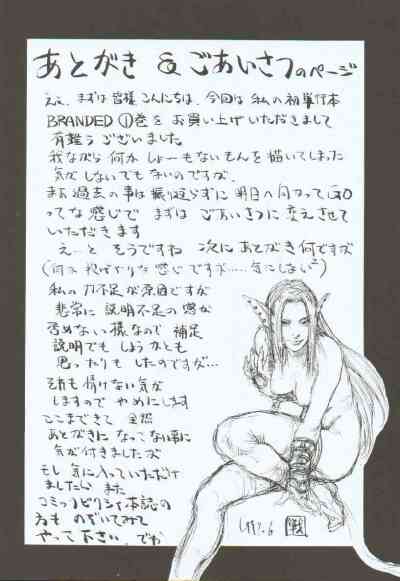 あとがき & ごあいさつのページ
ええ、まずは皆様こんにちは、今回は私の初単行本
BRANDED ①巻をお買い上げいただきまして
有難うございました
我ながら何かしょーもないもんを描いてしまった
気がしないでもないのですが、
まあ過去の事は振り返らずに明日へ向かってGO
ってな感じで まずはごあいさつに変えさせて
いただきます
えーと そうですね 次にあとがき何ですが
(何か投げやりな感じですが……気にしない)
私の力不足が原因ですが
非常に説明不足の感が
否めない様なので 補足
説明でもしようかとも
思ったりもしたのですが…
それも情けない気が
しますのでやめにします
ここまできて 全然
あとがきになってない事に
気が付きましたが
もし気に入っていただけ
ましたら また
コミックピリシャ本誌の
方も のぞいてみて
やって下さい、でわ